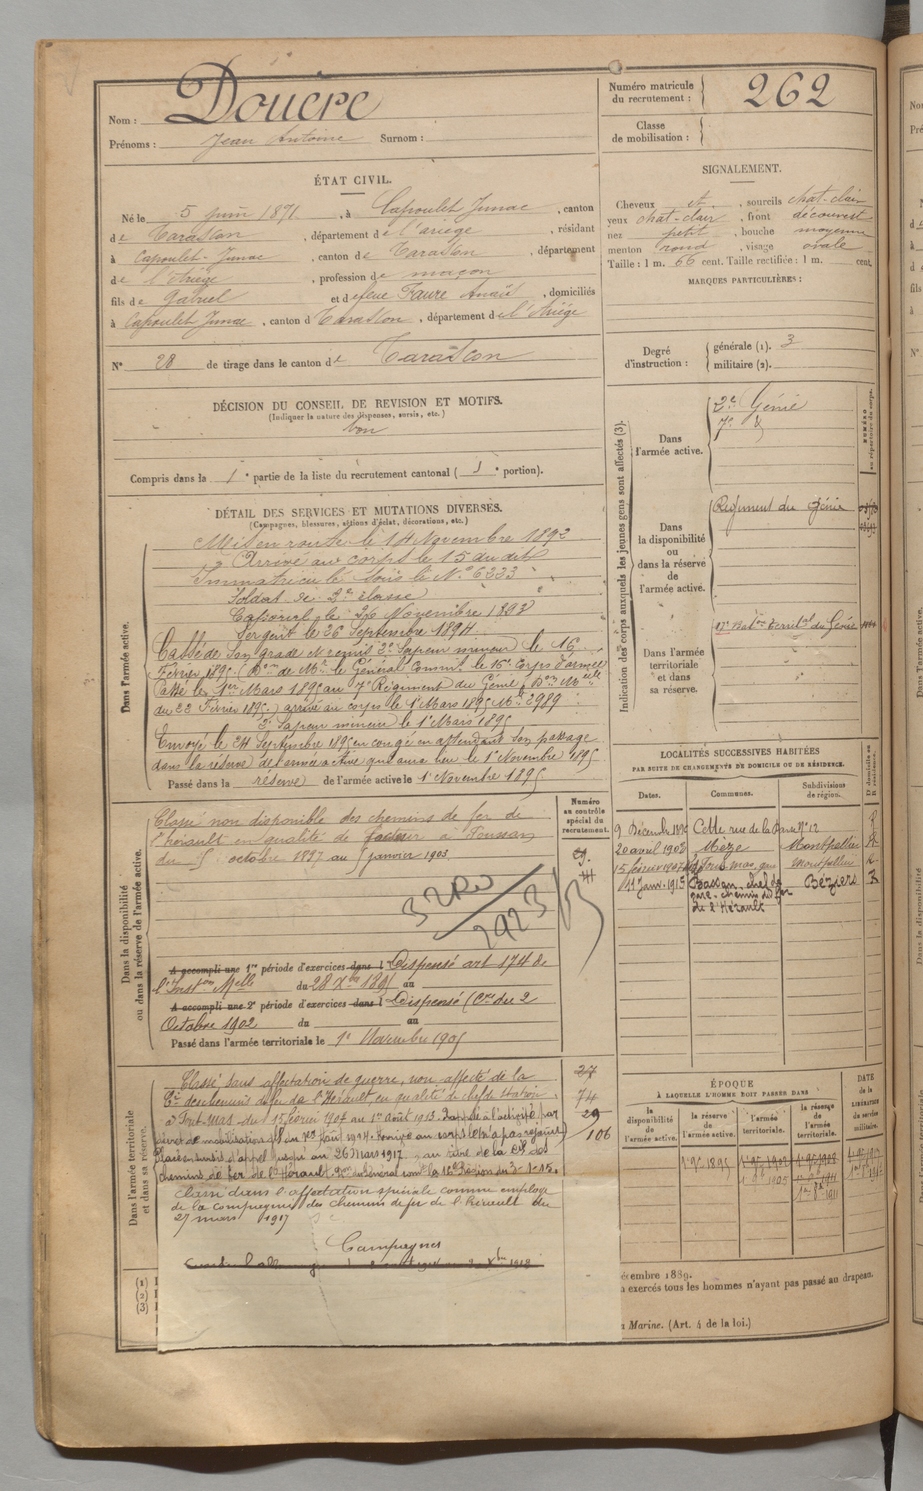 Nom : Douère
Prénoms : Jean Antoine Surnom :
Numéro matricule du recrutement : 262
Classe de mobilisation :
ÉTAT CIVIL.
Né le 5 juin 1871, à Capoulet Junac, canton
de Tarascon, département de l'ariège, résidant
à Capoulet-Junac, canton de Tarascon, département
de l'Ariège, profession de maçon
fils de Gabriel et de feue Faure Anaïs, domiciliés
à Capoulet Junac, canton d Tarascon, département de l'Ariège
N° 28 de tirage dans le canton de Tarascon
SIGNALEMENT.
Cheveux et, sourcils chat-clair
yeux chat-clair, front découvert
nez petit, bouche moyenne
menton rond, visage ovale
Taille : 1 m. 66 cent. Taille rectifiée : 1 m. cent.
MARQUES PARTICULIÈRES :
Degré d'instruction : générale (1). 3
militaire (2).
DÉCISION DU CONSEIL DE REVISION ET MOTIFS.
(Indiquer la nature des dispenses, sursis, etc.)
bon
Compris dans la 1e partie de la liste du recrutement cantonal (1e portion).
DÉTAIL DES SERVICES ET MUTATIONS DIVERSES.
(Campagnes, blessures, actions d'éclat, décorations, etc.)
Dans l'armée active.
Mis en route le 14 Novembre 1892
Arrivé au corps le 15 du dit
Immatriculé sous le N° 6333
Soldat de 2e classe
Caporal le 26 Novembre 1893
Sergent le 26 Septembre 1894
Cassé de son grade et remis 2e Sapeur mineur le 16
Février 1895 (Don de Mr le Général Commt le 16e Corps d'armée
Passé le 1er Mars 1895 au 7e Régiment du Génie (Don Mlle
du 22 Février 1895) arrivé au corps le 1er Mars 1895 No 2989
2e Sapeur mineur le 1er Mars 1895
Envoyé le 24 Septembre 1895 en congé en attendant son passage
dans la réserve de l'armée active qui aura lieu le 1er Novembre 1895
Passé dans la réserve de l'armée active le 1er Novembre 1895
Indication des corps auxquels les jeunes gens sont affectés (3).
NUMÉRO au répertoire du corps.
Dans l'armée active.
2e Génie
7e d
Dans la disponibilité ou dans la réserve de l'armée active.
Régiment du Génie
Dans l'armée territoriale et dans sa réserve.
17e Baton Territal du Génie
Dans la disponibilité ou dans la réserve de l'armée active.
Numéro au contrôle spécial du recrutement.
Classé non disponible des chemins de fer de
l'hérault en qualité de facteur à
du 5 octobre 1897 au 5 janvier 1903
2923
A accompli une 1re période d'exercices dans l Dispensé art 174 de
l'Inston Melle du 28 Xbre 1895 au
A accompli une 2e période d'exercices dans l Dispensé (Cre du 2
Octobre 1902 du au
Passé dans l'armée territoriale le 1er Novembre 1905
LOCALITÉS SUCCESSIVES HABITÉES
PAR SUITE DE CHANGEMENTS DE DOMICILE OU DE RÉSIDENCE.
Dates. Communes. Subdivisions de région.
9 Décembre Cette rue de la No 12
20 avril 1903 Mèze Montpellier R
15 février 1907 Montpellier R
11 Janv. 1915 Bassan, chef de gare, chemins de fer de l'Hérault Béziers R
Dans l'armée territoriale et dans sa réserve.
Classé sans affectation de guerre, non affecté de la
Cie des chemins de fer de l'Hérault en qualité de chef de station
à Font-Mas du 15 février 1907 au 1er Août 1913. Rappelé à l'activité par
décret de mobilisation gle du 1er Août 1914. n'a pas rejoint
Placé en sursis d'appel jusqu'au 26 Mars 1917, au titre de la Cie des
chemins de fer de l'Hérault. Don Général comt la 16e Région du 3-1-15.
Classé dans l'affectation spéciale comme employé
de la compagnie des chemins de fer de l'hérault du
27 mars 1917
Campagnes
27
74
29
106
ÉPOQUE
À LAQUELLE L'HOMME DOIT PASSER DANS
la disponibilité de l'armée active.
la réserve de l'armée active.
l'armée territoriale.
la réserve de l'armée territoriale.
DATE de la LIBÉRATION du service militaire.
1er 9bre 1895
(1)
(2)
(3)
décembre 1889.
exercés tous les hommes n'ayant pas passé au drapeau.
Marine. (Art. 4 de la loi.)